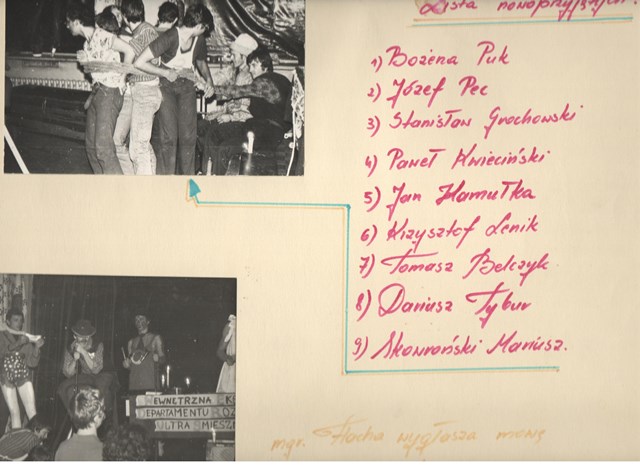 Lista nowoprzyjętych:
1) Bożena Puk
2) Józef Pec
3) Stanisław Grochowski
4) Paweł Kwieciński
5) Jan Hamułka
6) Krzysztof Lenik
7) Tomasz Belczyk
8) Dariusz Tybur
9) Skowroński Mariusz.
WEWNĘTRZNA
DEPARTAMENTU
ULTRA
mgr. Flacha wygłasza mowę